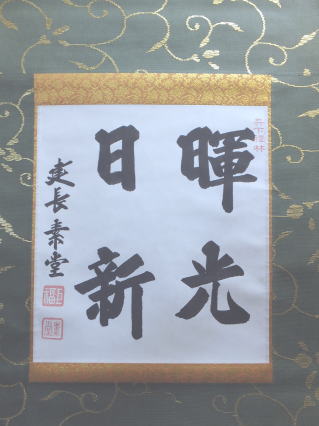 暉光
日新
建長素堂